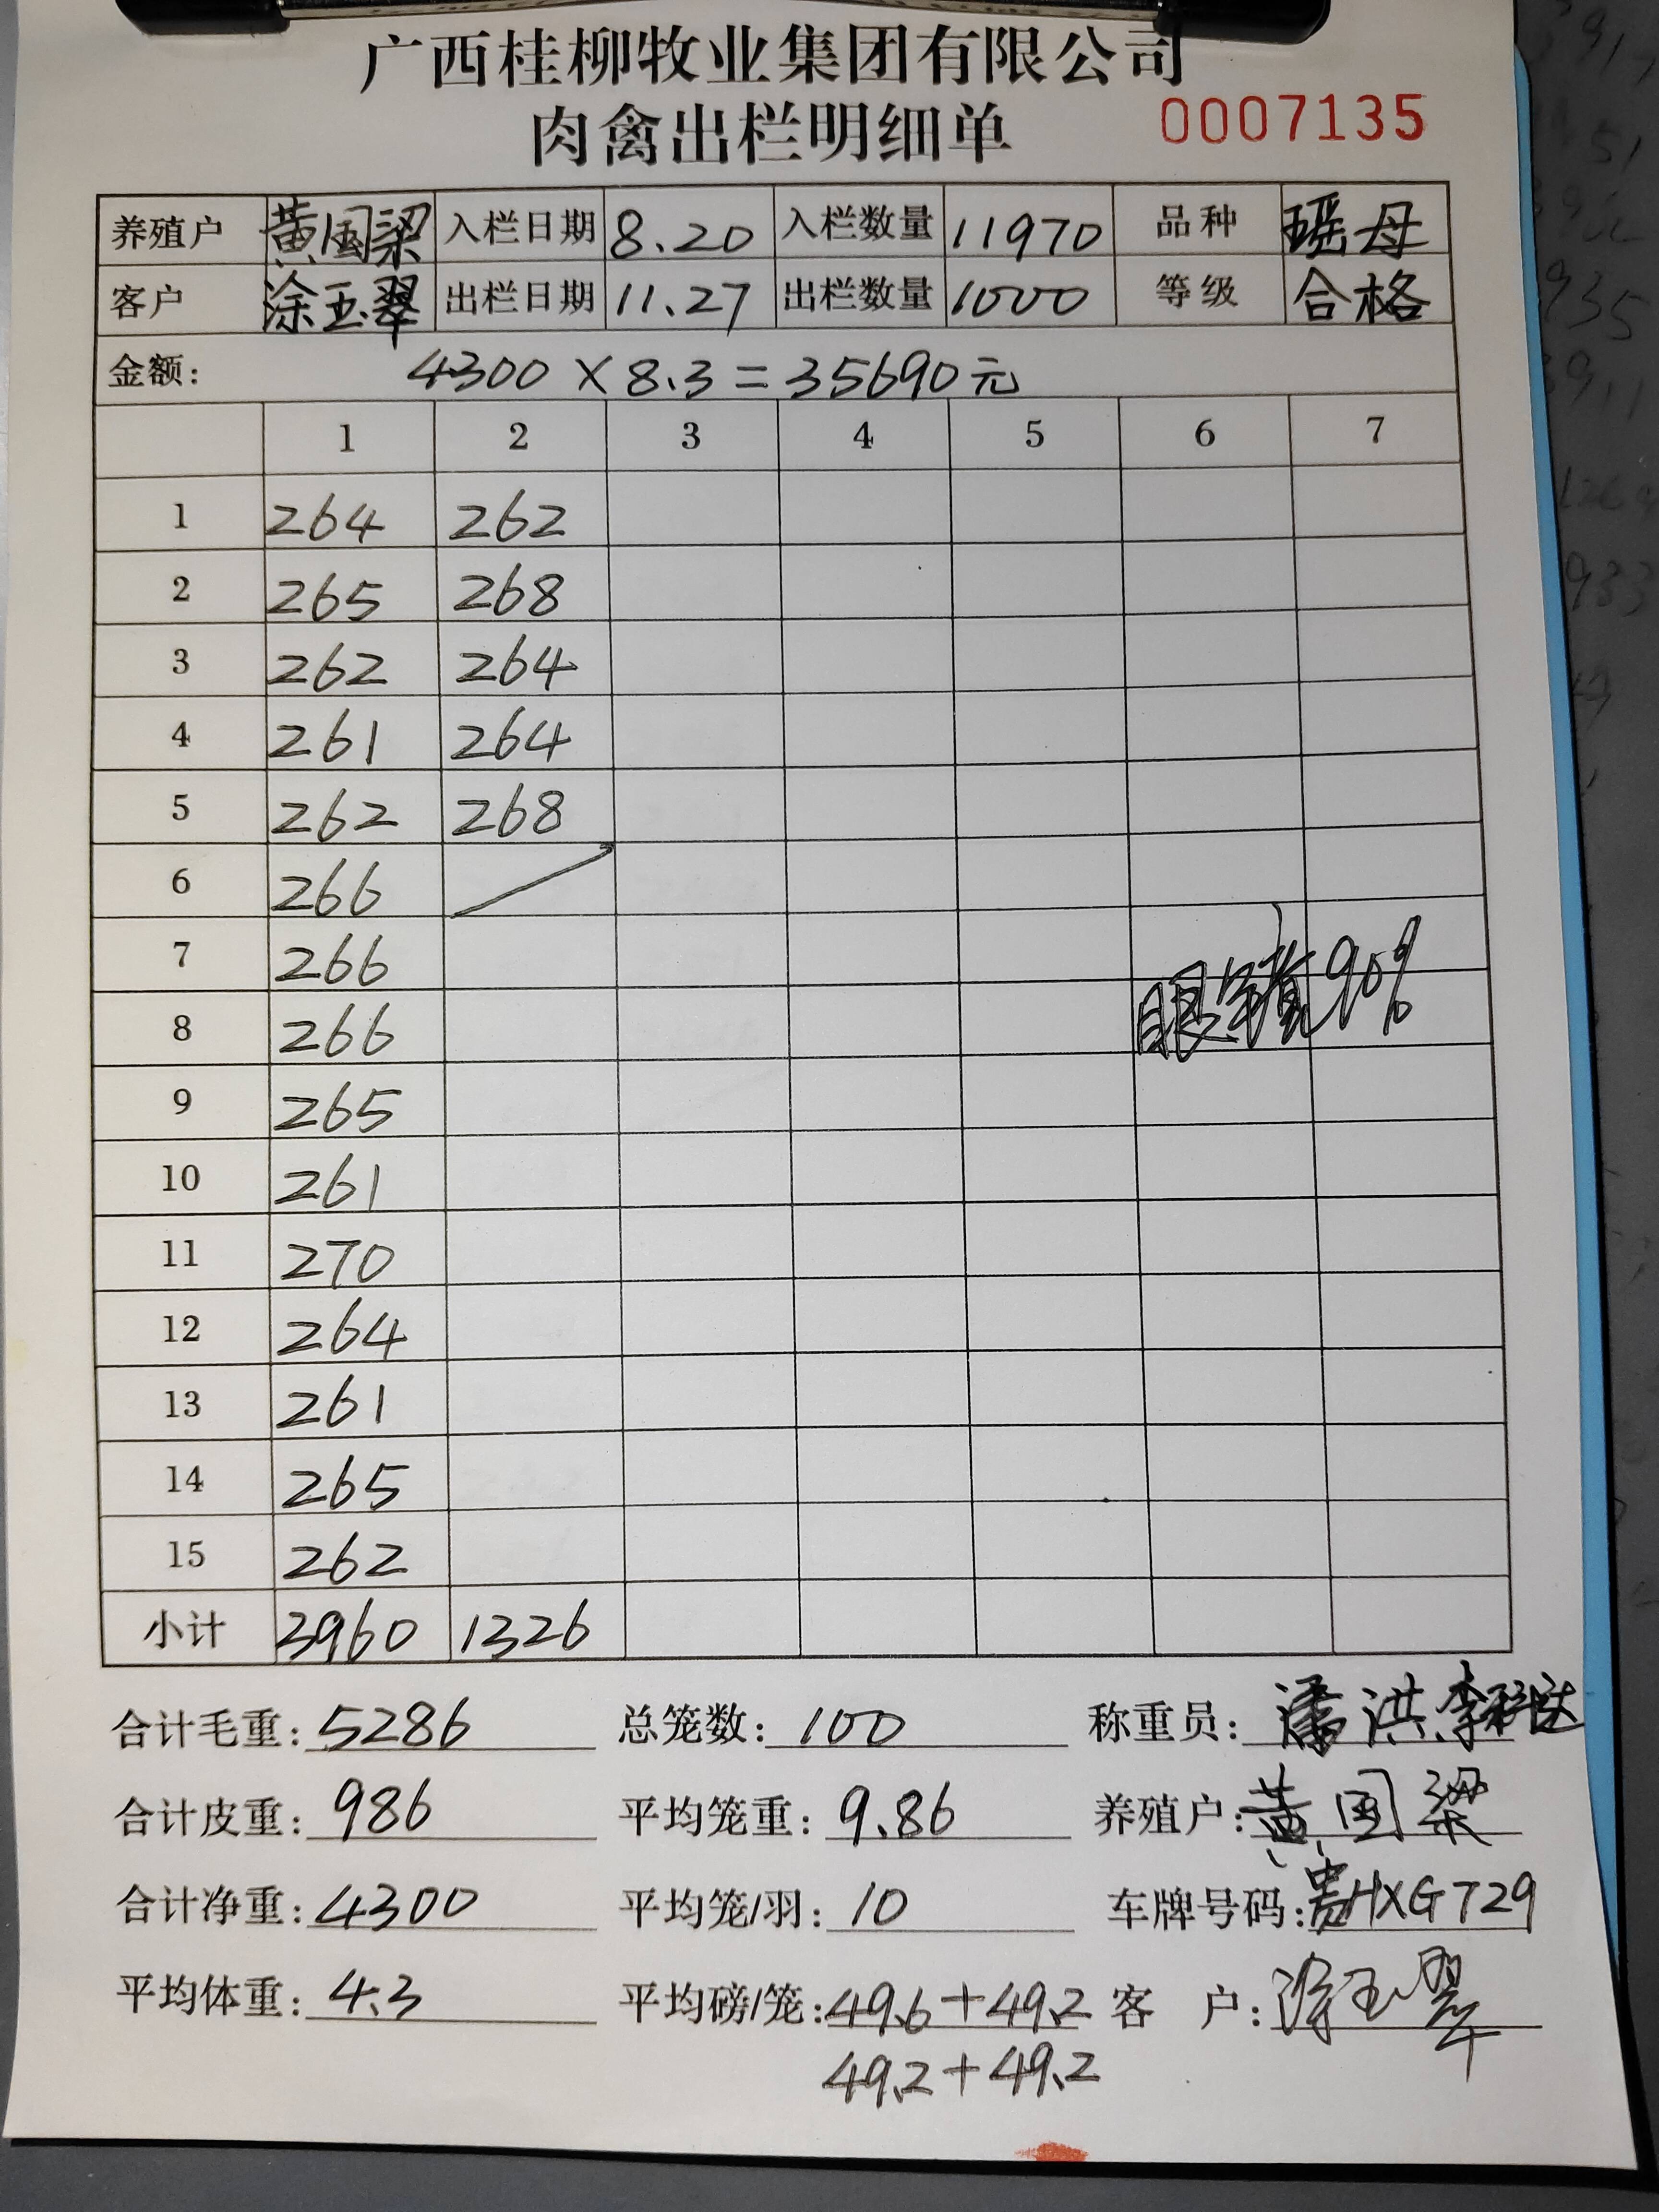 广西桂柳牧业集团有限公司
肉禽出栏明细单 0007135
养殖户 黄国梁 入栏日期 8.20 入栏数量 11970 品种 瑶母
客户 涂玉翠 出栏日期 11.27 出栏数量 1000 等级 合格
金额: 4300×8.3=35690元
1 2 3 4 5 6 7
1 264 262
2 265 268
3 262 264
4 261 264
5 262 268
6 266
7 266
眼 90%
8 266
9 265
10 261
11 270
12 264
13 261
14 265
15 262
小计 3960 1326
合计毛重: 5286 总笼数: 100 称重员: 潘洪 李
合计皮重: 986 平均笼重: 9.86 养殖户: 黄国梁
合计净重: 4300 平均笼/羽: 10 车牌号码: 贵HXG729
平均体重: 4.3 平均磅/笼: 49.6+49.2 客 户: 涂玉翠
49.2+49.2